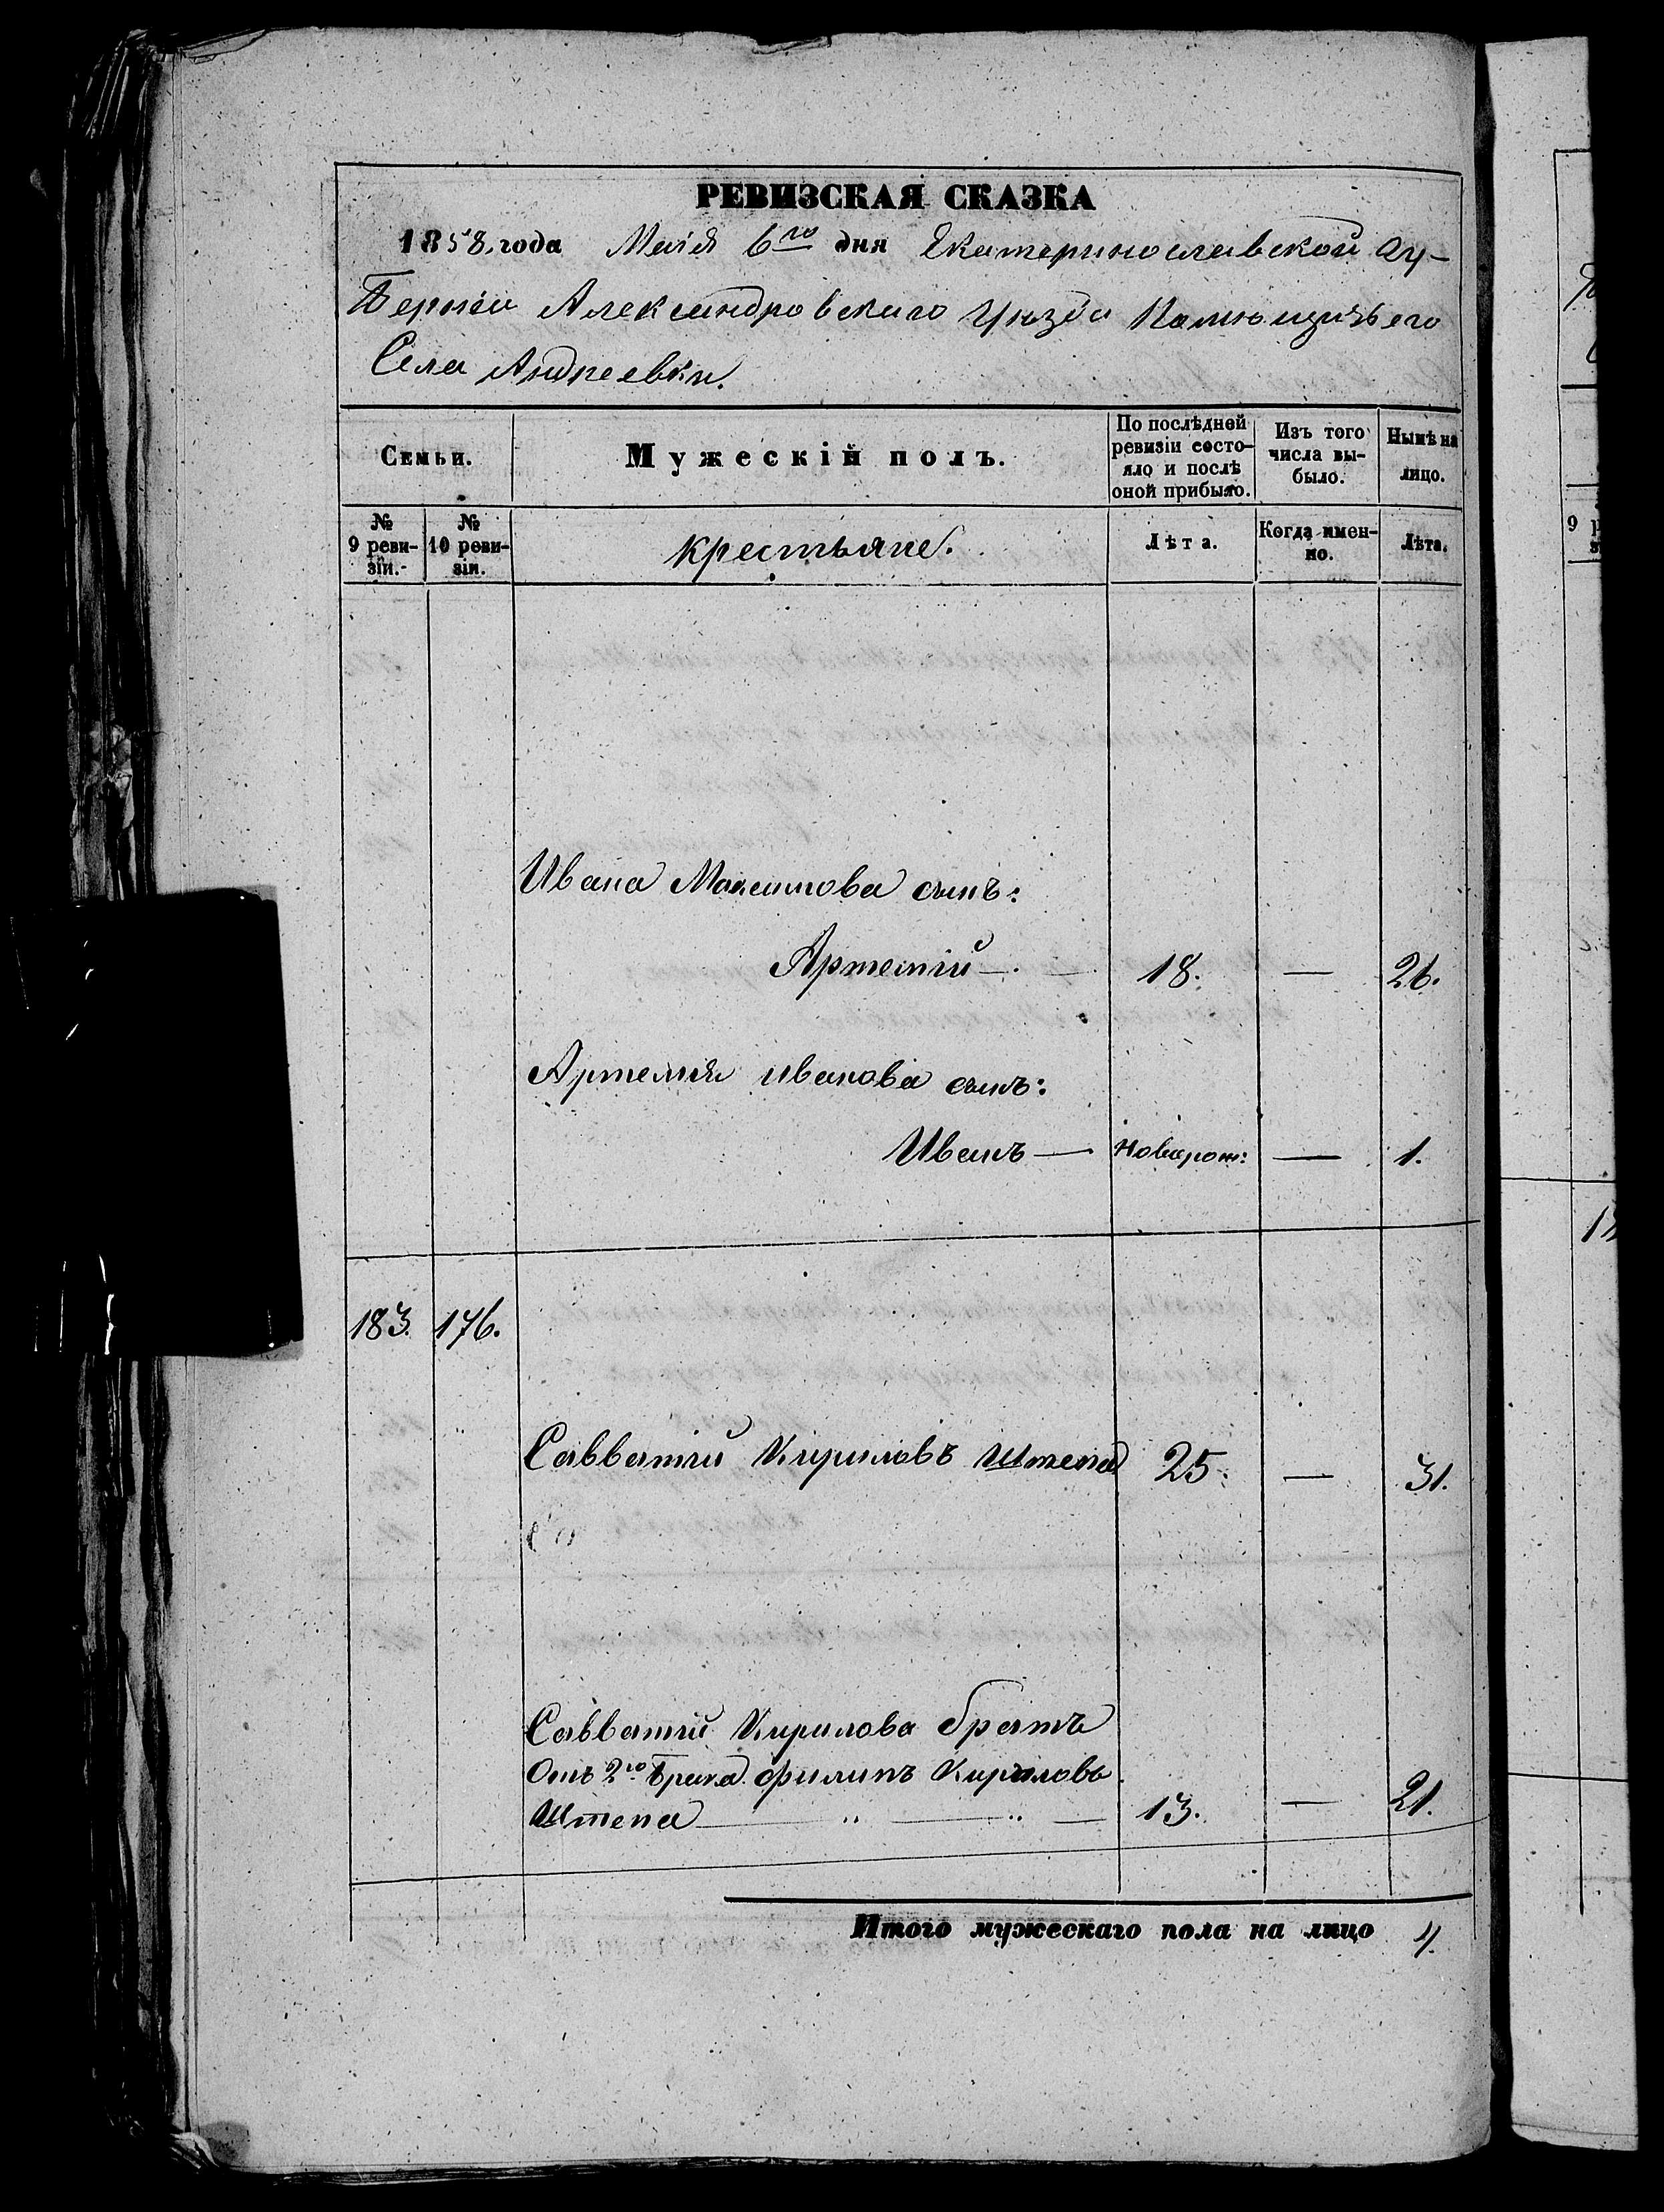 РЕВИЗСКАЯ СКАЗКА
1858. года Маія 6го дня Екатеринославской Гу-
Берніи Александровскаго Уѣзда Помѣщичьего
Села Андреевки.
Семьи.
Мужескій полъ.
По послѣдней ревизіи состо-
яло и послѣ оной прибыло.
Изъ того числа вы-
было.
Нынѣ на лицо.
№ 9 реви-
зіи.
№ 10 реви-
зіи.
крестьяне.
Лѣта.
Когда имен-
но.
Лѣта.
Ивана Максимова сынъ:
Артемій — 18. — 26.
Артемія Иванова сынъ:
Иванъ — Новорож: — 1.
183. 176.
Савватій Кириловъ Штепа 25. — 31.
Савватій Кирилова братъ
Отъ 2го Брака Филипъ Кириловъ
Штепа — " — " — 13. — 21.
Итого мужескаго пола на лицо 4.